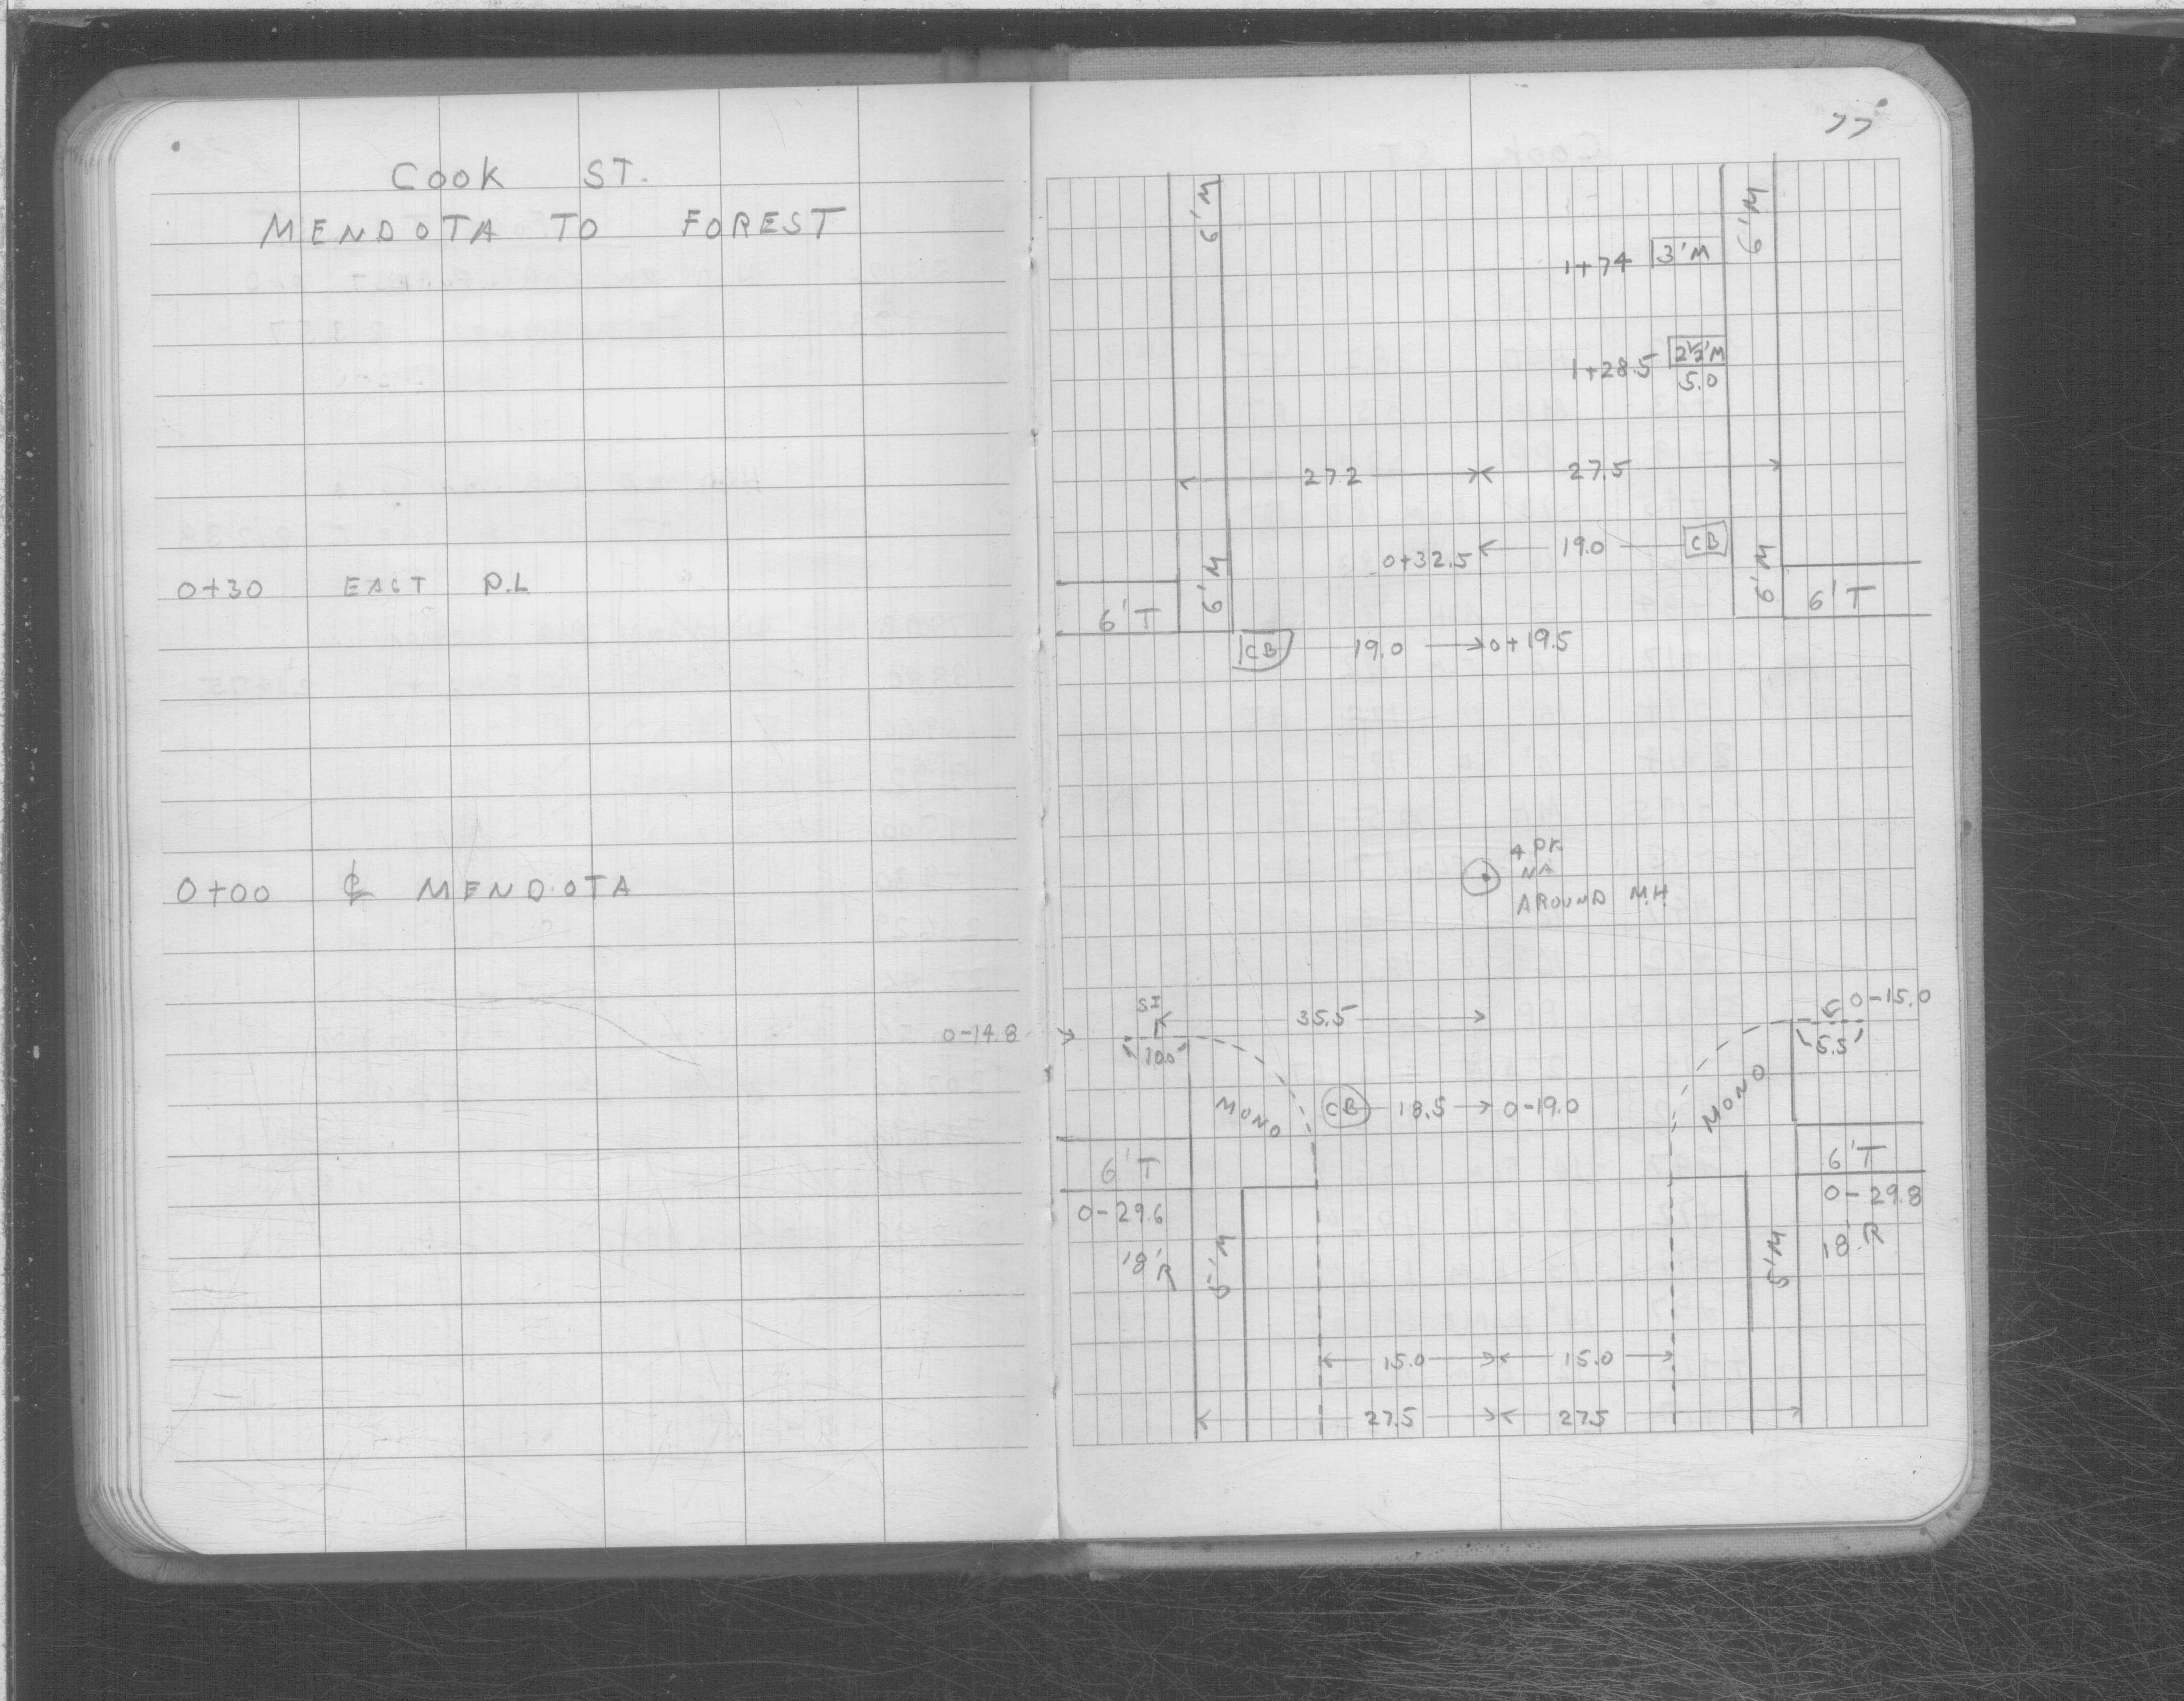 COOK ST.
MENDOTA TO FOREST
0+30 EAST P.L
0+00 ℄ MENDOTA
0-14.8
77
6'M 6'M
1+74 3'M
1+28.5 2½'M
5.0
27.2 27.5
0+32.5 19.0 CB
6'T 6'M 6'M 6'T
CB 19.0 0+19.5
4 PK
NA
AROUND M.H.
SI 35.5 0-15.0
10.0 5.5
MONO CB 18.5 0-19.0 MONO
6'T 6'T
0-29.6 0-29.8
18'R 5'M 5'M 18'R
15.0 15.0
27.5 27.5